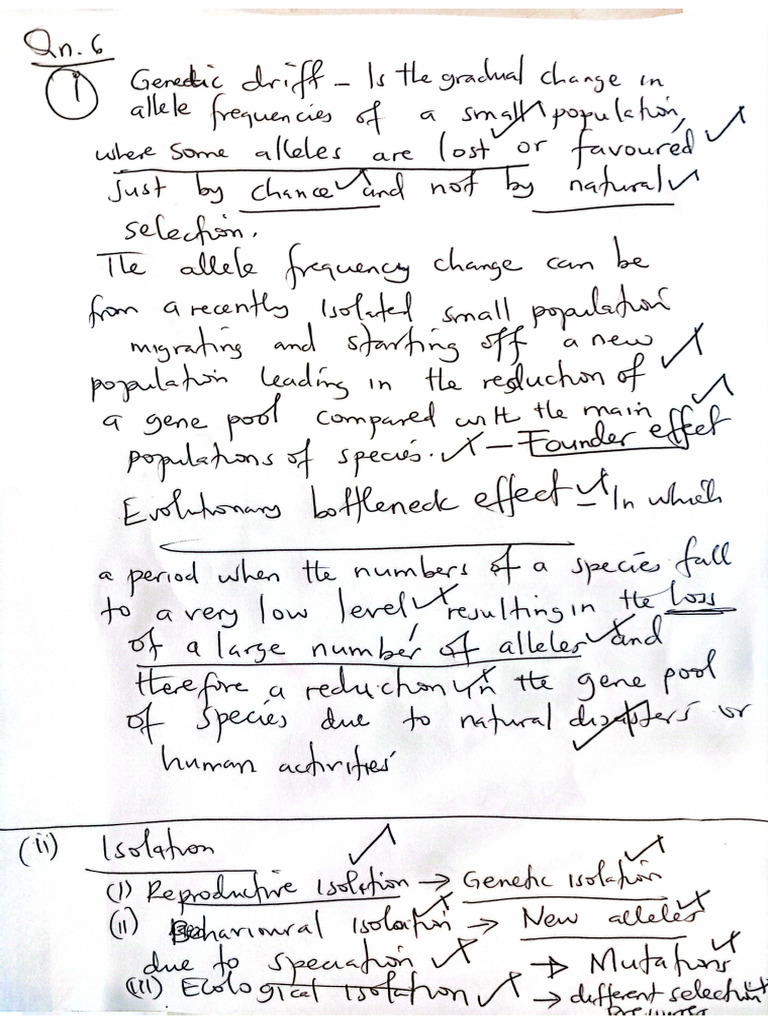 Qn. 6
(i) Genetic drift - Is the gradual change in
allele frequencies of a small population,
where some alleles are lost or favoured
just by chance and not by natural
selection.
The allele frequency change can be
from a recently isolated small population
migrating and starting off a new
population leading in the reduction of
a gene pool compared with the main
populations of species. - Founder effect
Evolutionary bottleneck effect - In which
a period when the numbers of a species fall
to a very low level, resulting in the loss
of a large number of alleles and
therefore a reduction in the gene pool
of species due to natural disasters or
human activities
(ii) Isolation
(i) Reproductive isolation → Genetic isolation
(ii) Behavioural isolation → New alleles
due to speciation → Mutations
(iii) Ecological isolation → different selection
pressures